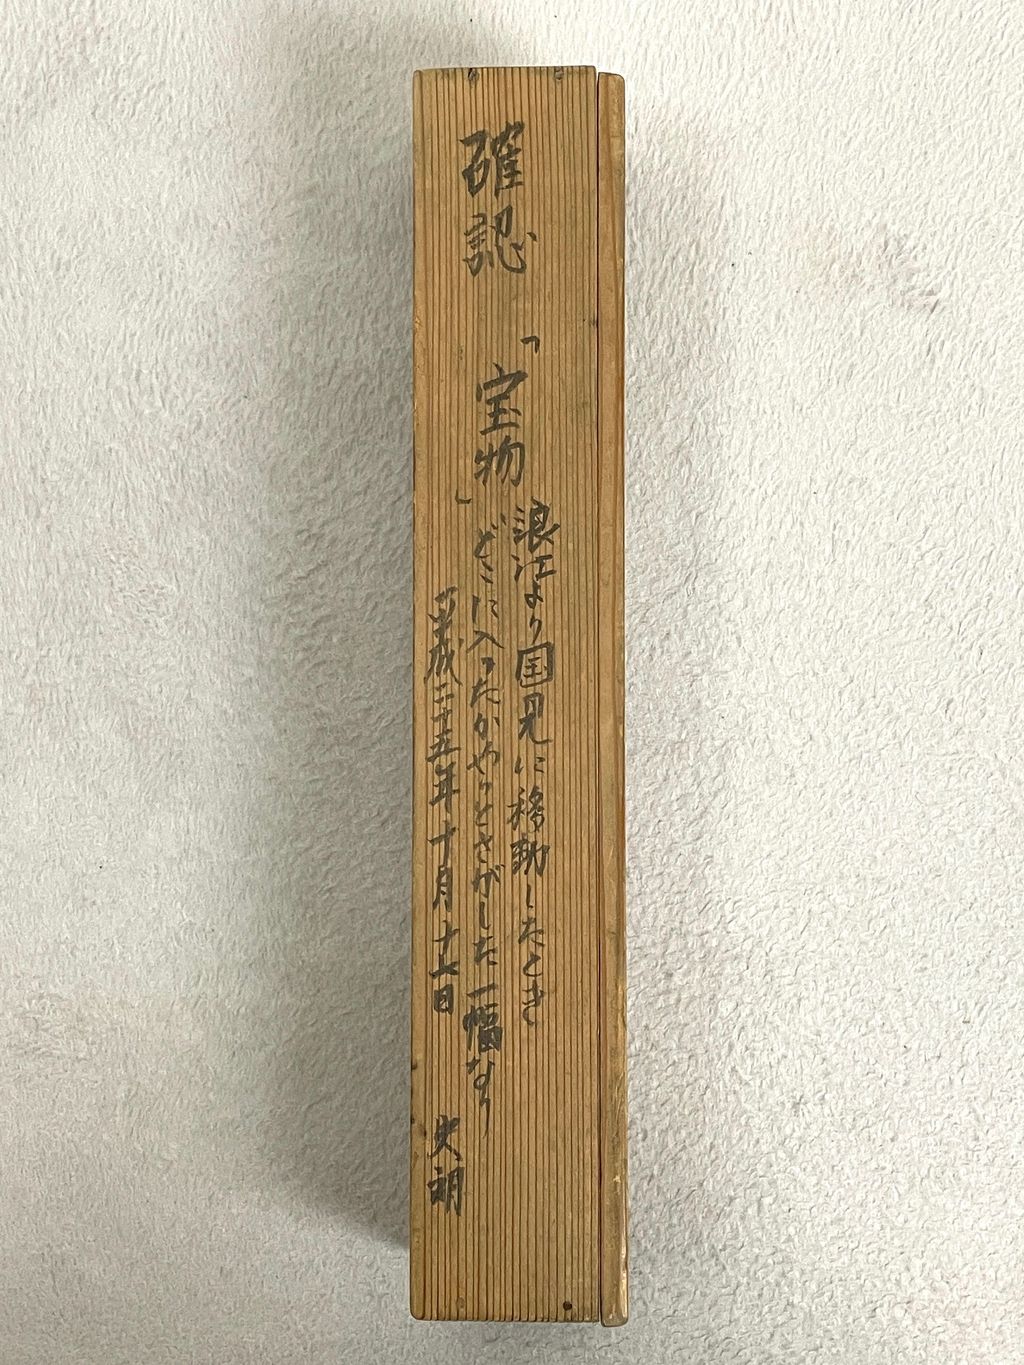 確認
「宝物」
浪江より国見に移動したとき
どこに入ったかやっとさがした一幅なり
平成二十五年十月十七日
史朗